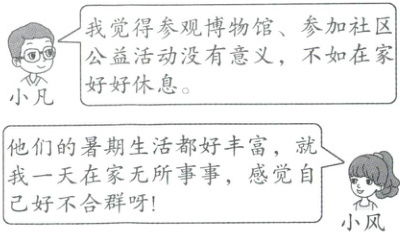 我觉得参观博物馆、参加社区
公益活动没有意义，不如在家
好好休息。
小凡
他们的暑期生活都好丰富，就
我一天在家无所事事，感觉自
己好不合群呀！
小风